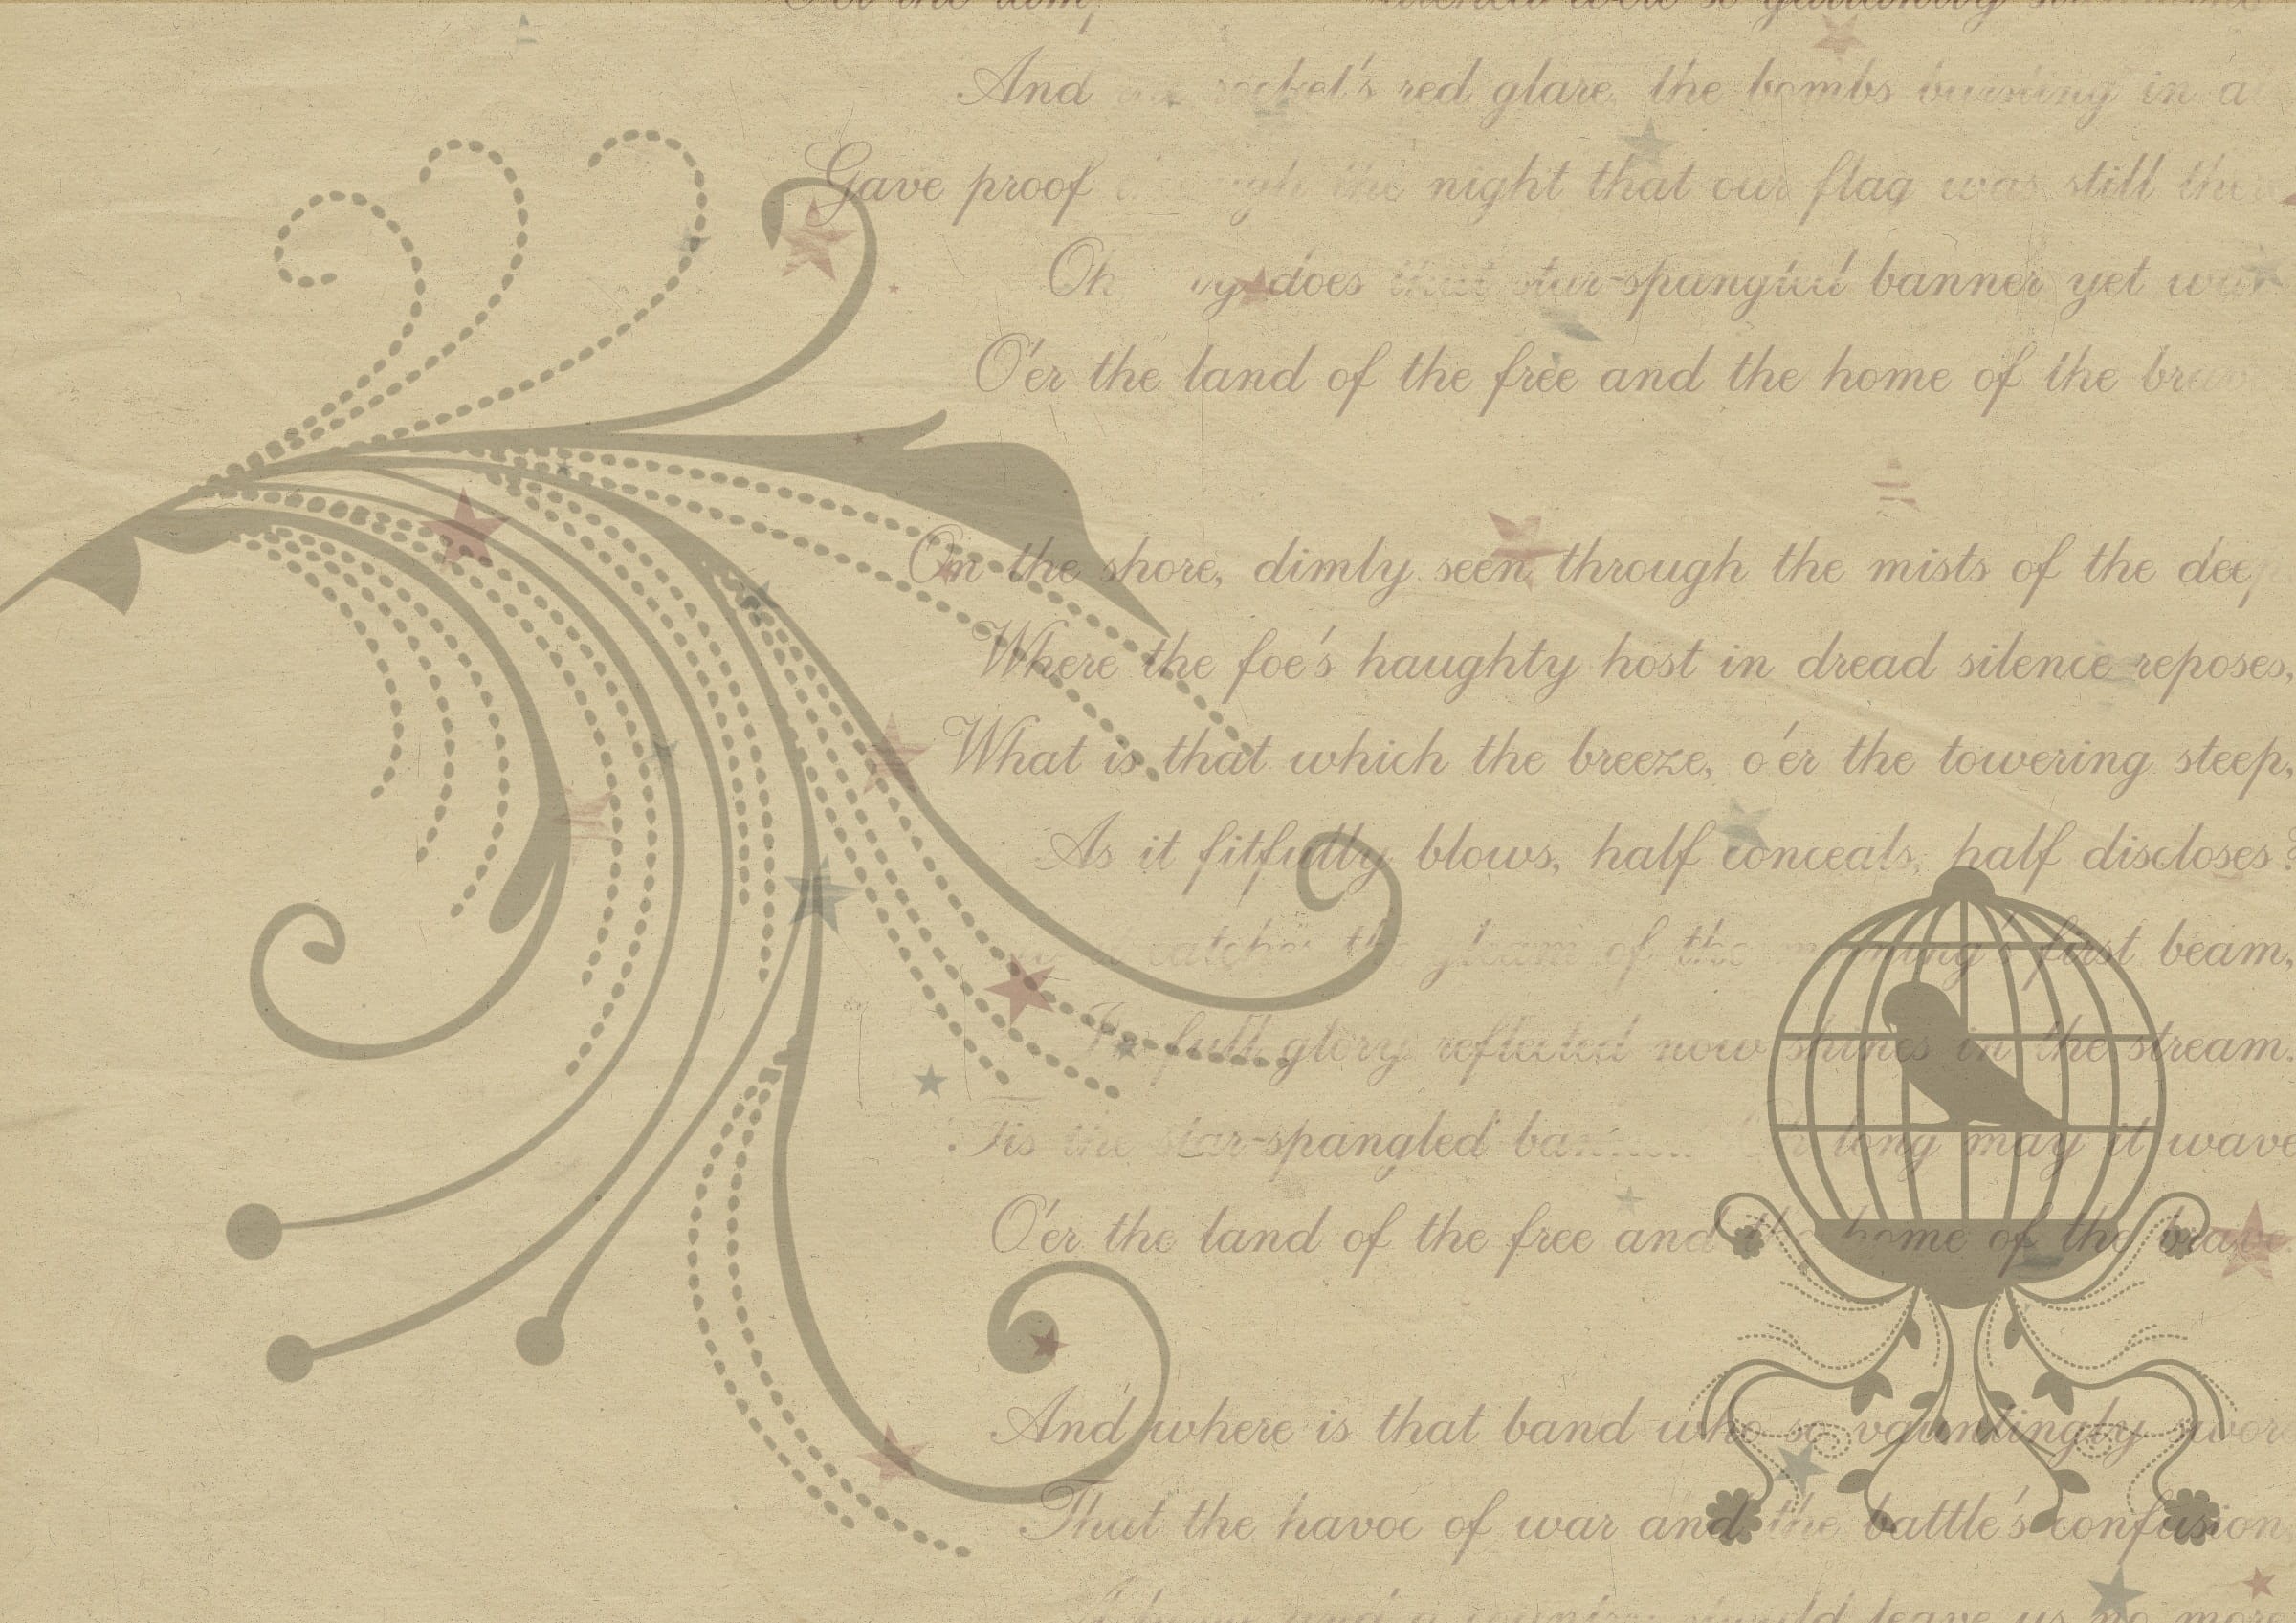 were so gallantly
And rocket's red glare, the bombs bursting in
Gave proof through the night that our flag was still there
Oh does that star-spangled banner yet
O'er the land of the free and the home of the brave
On the shore, dimly seen through the mists of the deep
Where the foe's haughty host in dread silence reposes,
What is that which the breeze, o'er the towering steep,
As it fitfully blows, half conceals, half discloses?
catches the gleam of the morning's first beam,
In full glory reflected now shines in the stream.
'Tis the star-spangled banner. Oh long may it wave
O'er the land of the free and the home of the brave
And where is that band who so vauntingly
That the havoc of war and the battle's confusion
leave us no more